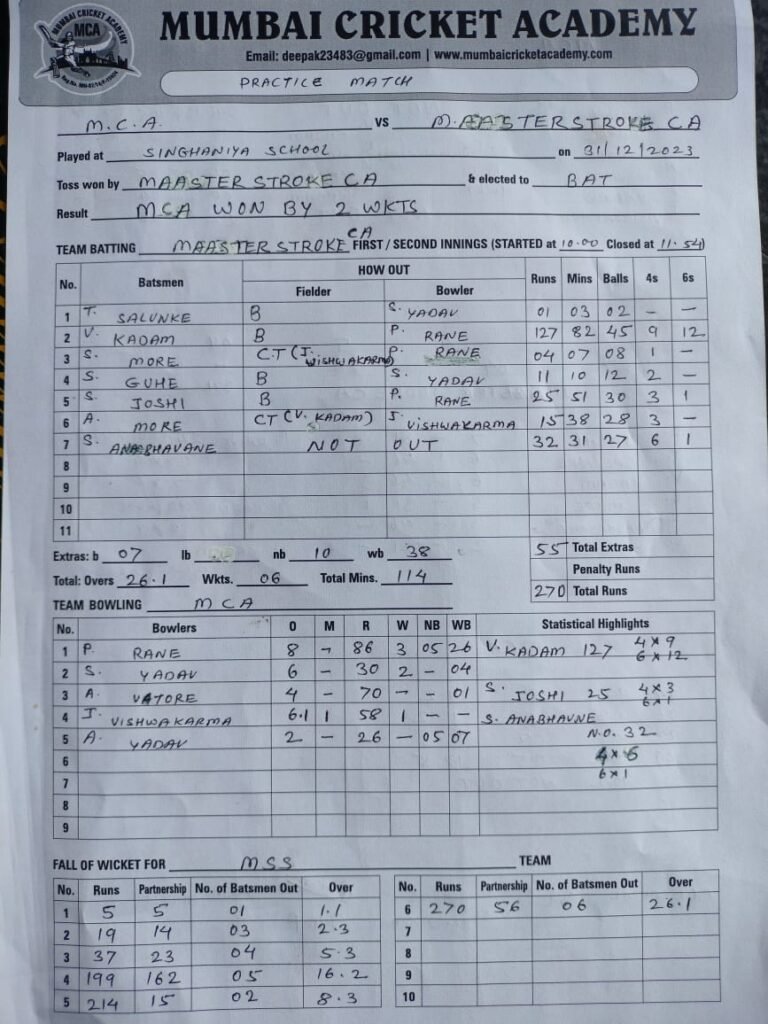 MUMBAI CRICKET ACADEMY
MCA
MUMBAI CRICKET ACADEMY
Email: deepak23483@gmail.com | www.mumbaicricketacademy.com
PRACTICE MATCH
M.C.A. VS MAASTERSTROKE CA
Played at SINGHANIYA SCHOOL on 31/12/2023
Toss won by MAASTER STROKE CA & elected to BAT
Result MCA WON BY 2 WKTS
TEAM BATTING MAASTERSTROKE CA FIRST / SECOND INNINGS (STARTED at 10.00 Closed at 11.54)
No. Batsmen HOW OUT Runs Mins Balls 4s 6s
Fielder Bowler
1 T. SALUNKE B S. YADAV 01 03 02 – –
2 V. KADAM B P. RANE 127 82 45 9 12
3 S. MORE C.T (J. VISHWAKARMA) P. RANE 04 07 08 1 –
4 S. GUHE B S. YADAV 11 10 12 2 –
5 S. JOSHI B P. RANE 25 51 30 3 1
6 A. MORE CT (V. KADAM) J. VISHWAKARMA 15 38 28 3 –
7 S. ANABHAVANE NOT OUT 32 31 27 6 1
8
9
10
11
Extras: b 07 lb nb 10 wb 38 55 Total Extras
Penalty Runs
Total: Overs 26.1 Wkts. 06 Total Mins. 114 270 Total Runs
TEAM BOWLING MCA
No. Bowlers O M R W NB WB Statistical Highlights
1 P. RANE 8 – 86 3 05 26 V. KADAM 127 4×9
6×12
2 S. YADAV 6 – 30 2 – 04
3 A. VATORE 4 – 70 – – 01 S. JOSHI 25 4×3
6×1
4 J. VISHWAKARMA 6.1 1 58 1 – – S. ANABHAVNE
5 A. YADAV 2 – 26 – 05 07 N.O. 32
6 4×6
6×1
7
8
9
FALL OF WICKET FOR MSS TEAM
No. Runs Partnership No. of Batsmen Out Over No. Runs Partnership No. of Batsmen Out Over
1 5 5 01 1.1 6 270 56 06 26.1
2 19 14 03 2.3 7
3 37 23 04 5.3 8
4 199 162 05 16.2 9
5 214 15 02 8.3 10